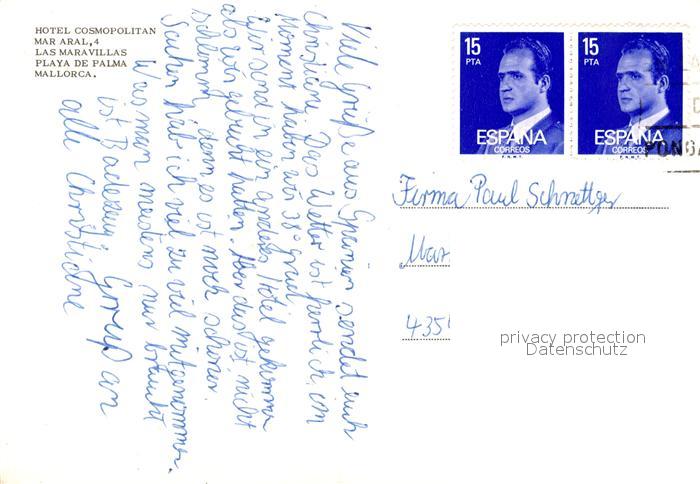 HOTEL COSMOPOLITAN
MAR ARAL, 4
LAS MARAVILLAS
PLAYA DE PALMA
MALLORCA.
Viele Grüße aus Spanien sendet euch
Christiane. Das Wetter ist herrlich, im
Moment haben wir 38° grad.
Wir sind in ein anderes Hotel gekommen
als wir gebucht hatten. Aber das ist nicht
schlimm, denn es ist noch schöner.
Sachen hab ich viel zu viel mitgenommen.
Was man meistens nur braucht
ist Badezeug. Gruß an
alle Christiane
15
PTA
ESPAÑA
CORREOS
F.N.M.T.
15
PTA
ESPAÑA
CORREOS
F.N.M.T.
Firma Paul Schnettger
435
privacy protection
Datenschutz